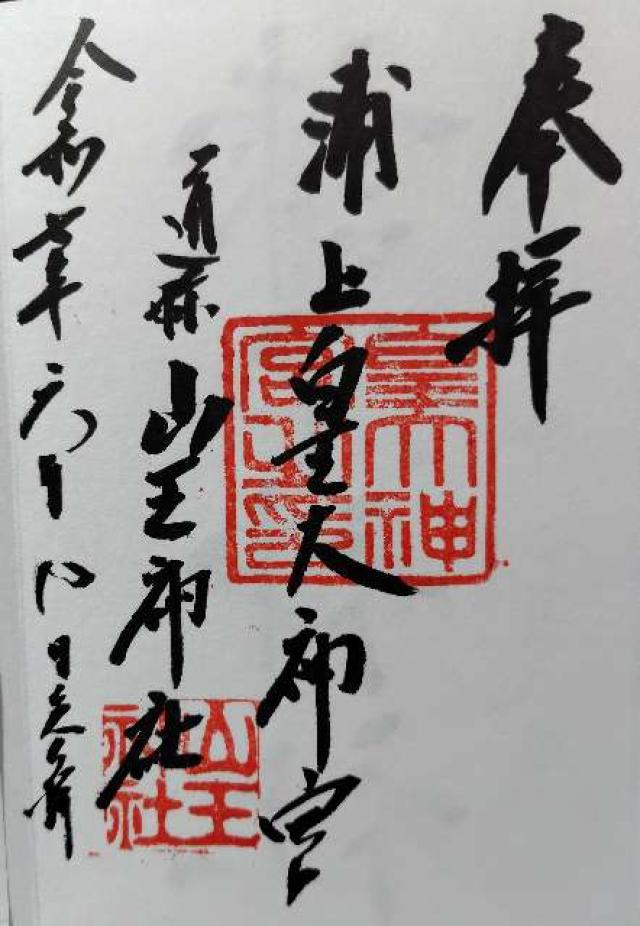 奉拝
浦上皇大神宮
皇大神
宮之印
通称 山王神社
山王
神社
令和七年六月日